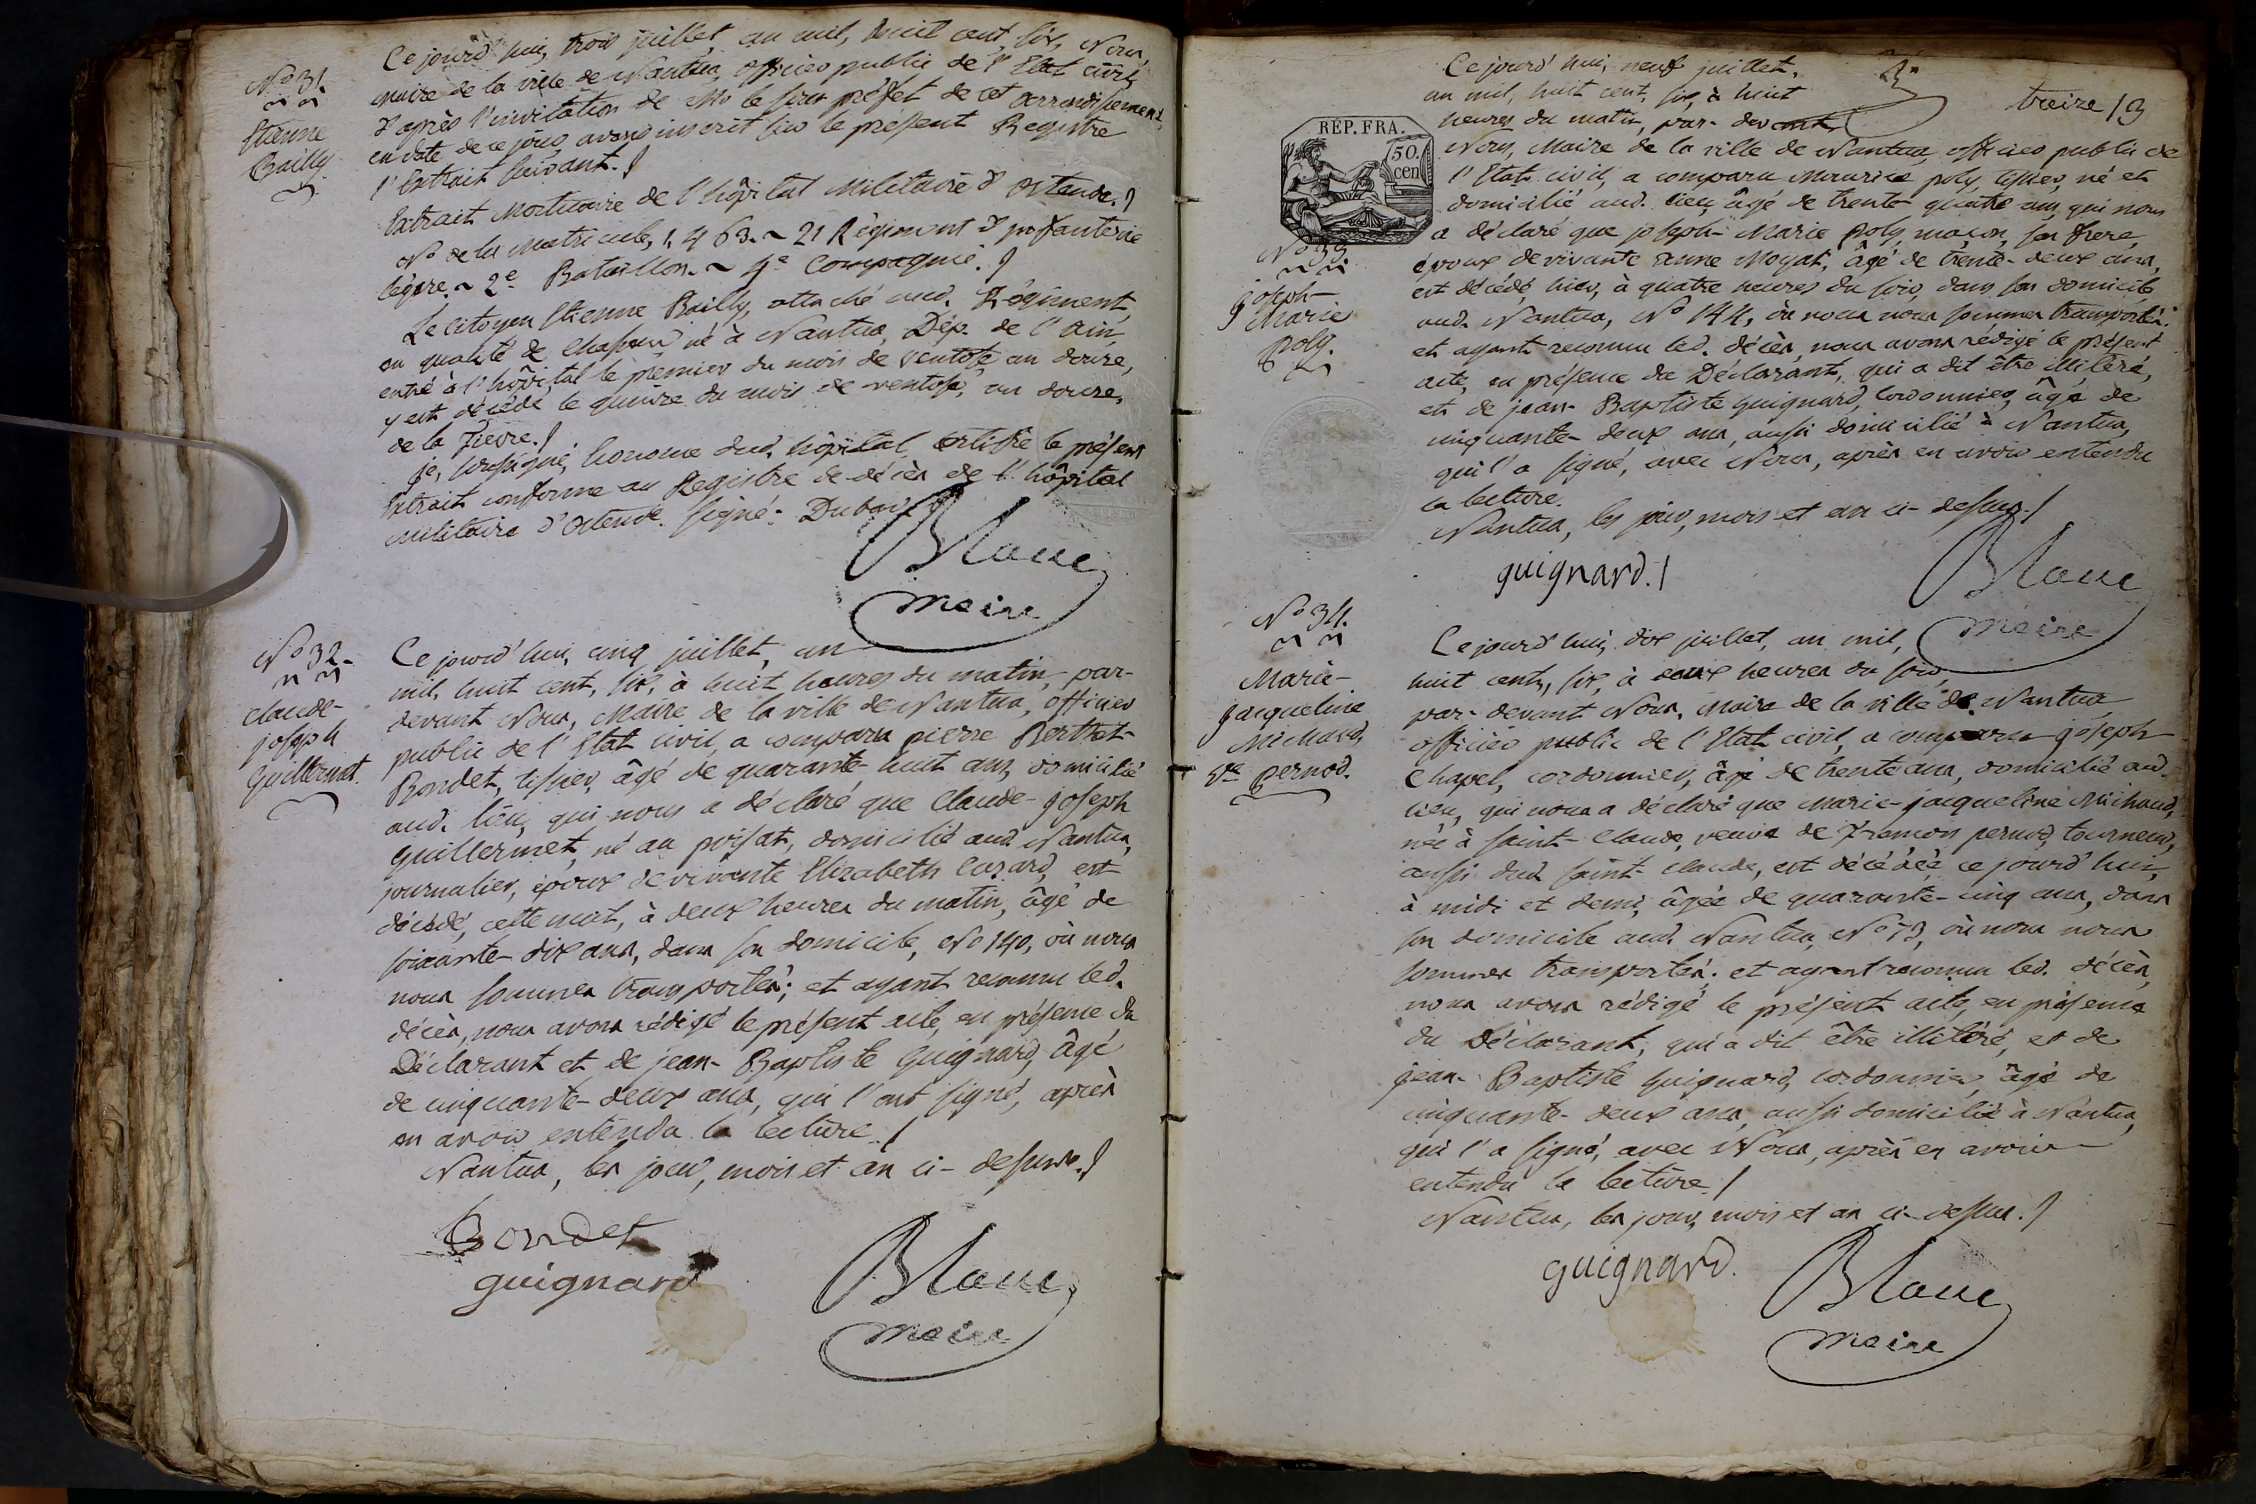 N° 31.
Etienne
Bailly.
Ce jourd'hui, trois juillet, an mil, huit cent, six, Nous,
maire de la ville de Nantua, officier public de l'Etat civil,
d'après l'invitation de Mr le sous préfet de cet arrondissement,
en date de ce jour, avons inscrit sur le présent Registre
l'Extrait suivant./
Extrait Mortuaire de l'hôpital Militaire d'Ostende./
N° de la Matricule, 1,463. ~ 21 Régiment d'infanterie
légère. ~ 2e Bataillon. ~ 4e Compagnie./
Le Citoyen Etienne Bailly, attaché aud. Régiment,
en qualité de Chasseur né à Nantua, Dép. de l'Ain,
entré à l'hôpital le premier du mois de ventôse, an douze,
y est décédé le quinze du mois de ventose, an douze,
de la fièvre./
je, soussigné, Econome dud. hôpital, certifie le présent
Extrait conforme au Registre de décès de l'hôpital
militaire d'Ostende. signé: Dubois
Blanc
maire
N° 32.
Claude-
joseph
Guillermet.
Ce jourd'hui, cinq juillet, an
mil, huit cent, six, à huit heures du matin, par-
devant Nous, Maire de la ville de Nantua, officier
public de l'Etat civil, a comparu pierre Berthet-
Bondet, tissier, âgé de quarante-huit ans, domicilié
aud. lieu, qui nous a déclaré que Claude-joseph
Guillermet, né au poisat, domicilié aud. Nantua,
journalier, époux de vivante Elizabeth Cuzard, est
décédé, cette nuit, à deux heures du matin, âgé de
soixante-dix ans, dans son domicile, N° 140, où nous
nous sommes transportés; et ayant reconnu led.
décès, nous avons rédigé le présent acte, en présence du
Déclarant et de jean-Baptiste Guignard, âgé
de cinquante-deux ans, qui l'ont signé, après
en avoir entendu la lecture./
Nantua, les jour, mois et an ci-dessus./
Bondet
guignard
Blanc
maire
treize 13
RÉP. FRA.
50.
cen
N° 33.
joseph-
Marie
poly.
Ce jourd'hui, neuf juillet,
an mil, huit cent, six, à huit
heures du matin, par-devant
Nous, Maire de la ville de Nantua, officier public de
l'Etat civil, a comparu Maurice poly, tissier, né et
domicilié aud. lieu, âgé de trente quatre ans, qui nous
a déclaré que joseph-Marie poly, maçon, son frere,
époux de vivante anne Moyat, âgé de trente-deux ans,
est décédé, hier, à quatre heures du soir, dans son domicile
aud. Nantua, N° 144, où nous nous sommes transportés:
et ayant reconnu led. décès, nous avons rédigé le présent
acte, en présence du Déclarant, qui a dit être illitéré,
et de jean-Baptiste Guignard, cordonnier, âgé de
cinquante-deux ans, aussi domicilié à Nantua,
qui l'a signé, avec Nous, après en avoir entendu
la lecture.
Nantua, les jour, mois et an ci-dessus./
guignard./
Blanc
maire
N° 34.
Marie-
jacqueline
Michaud,
Ve pernod.
Ce jourd'hui, dix juillet, an mil,
huit cent, six, à heures du soir,
par-devant Nous, Maire de la ville de Nantua
officier public de l'Etat civil, a comparu joseph
Chapel, cordonnier, âgé de trente ans, domicilié aud.
lieu, qui nous a déclaré que Marie-jacqueline Michaud,
née à Saint-Claude, veuve de françois pernod, tourneur,
aussi dud. Saint-Claude, est décédée, ce jourd'hui,
à midi et demi, âgée de quarante-cinq ans, dans
son domicile aud. Nantua, N° 73, où nous nous
sommes transportés; et ayant reconnu led. décès,
nous avons rédigé le présent acte, en présence
du Déclarant, qui a dit être illitéré, et de
jean-Baptiste Guignard, cordonnier, âgé de
cinquante-deux ans, aussi domicilié à Nantua,
qui l'a signé, avec Nous, après en avoir
entendu la lecture./
Nantua, les jour, mois et an ci-dessus./
guignard.
Blanc
maire